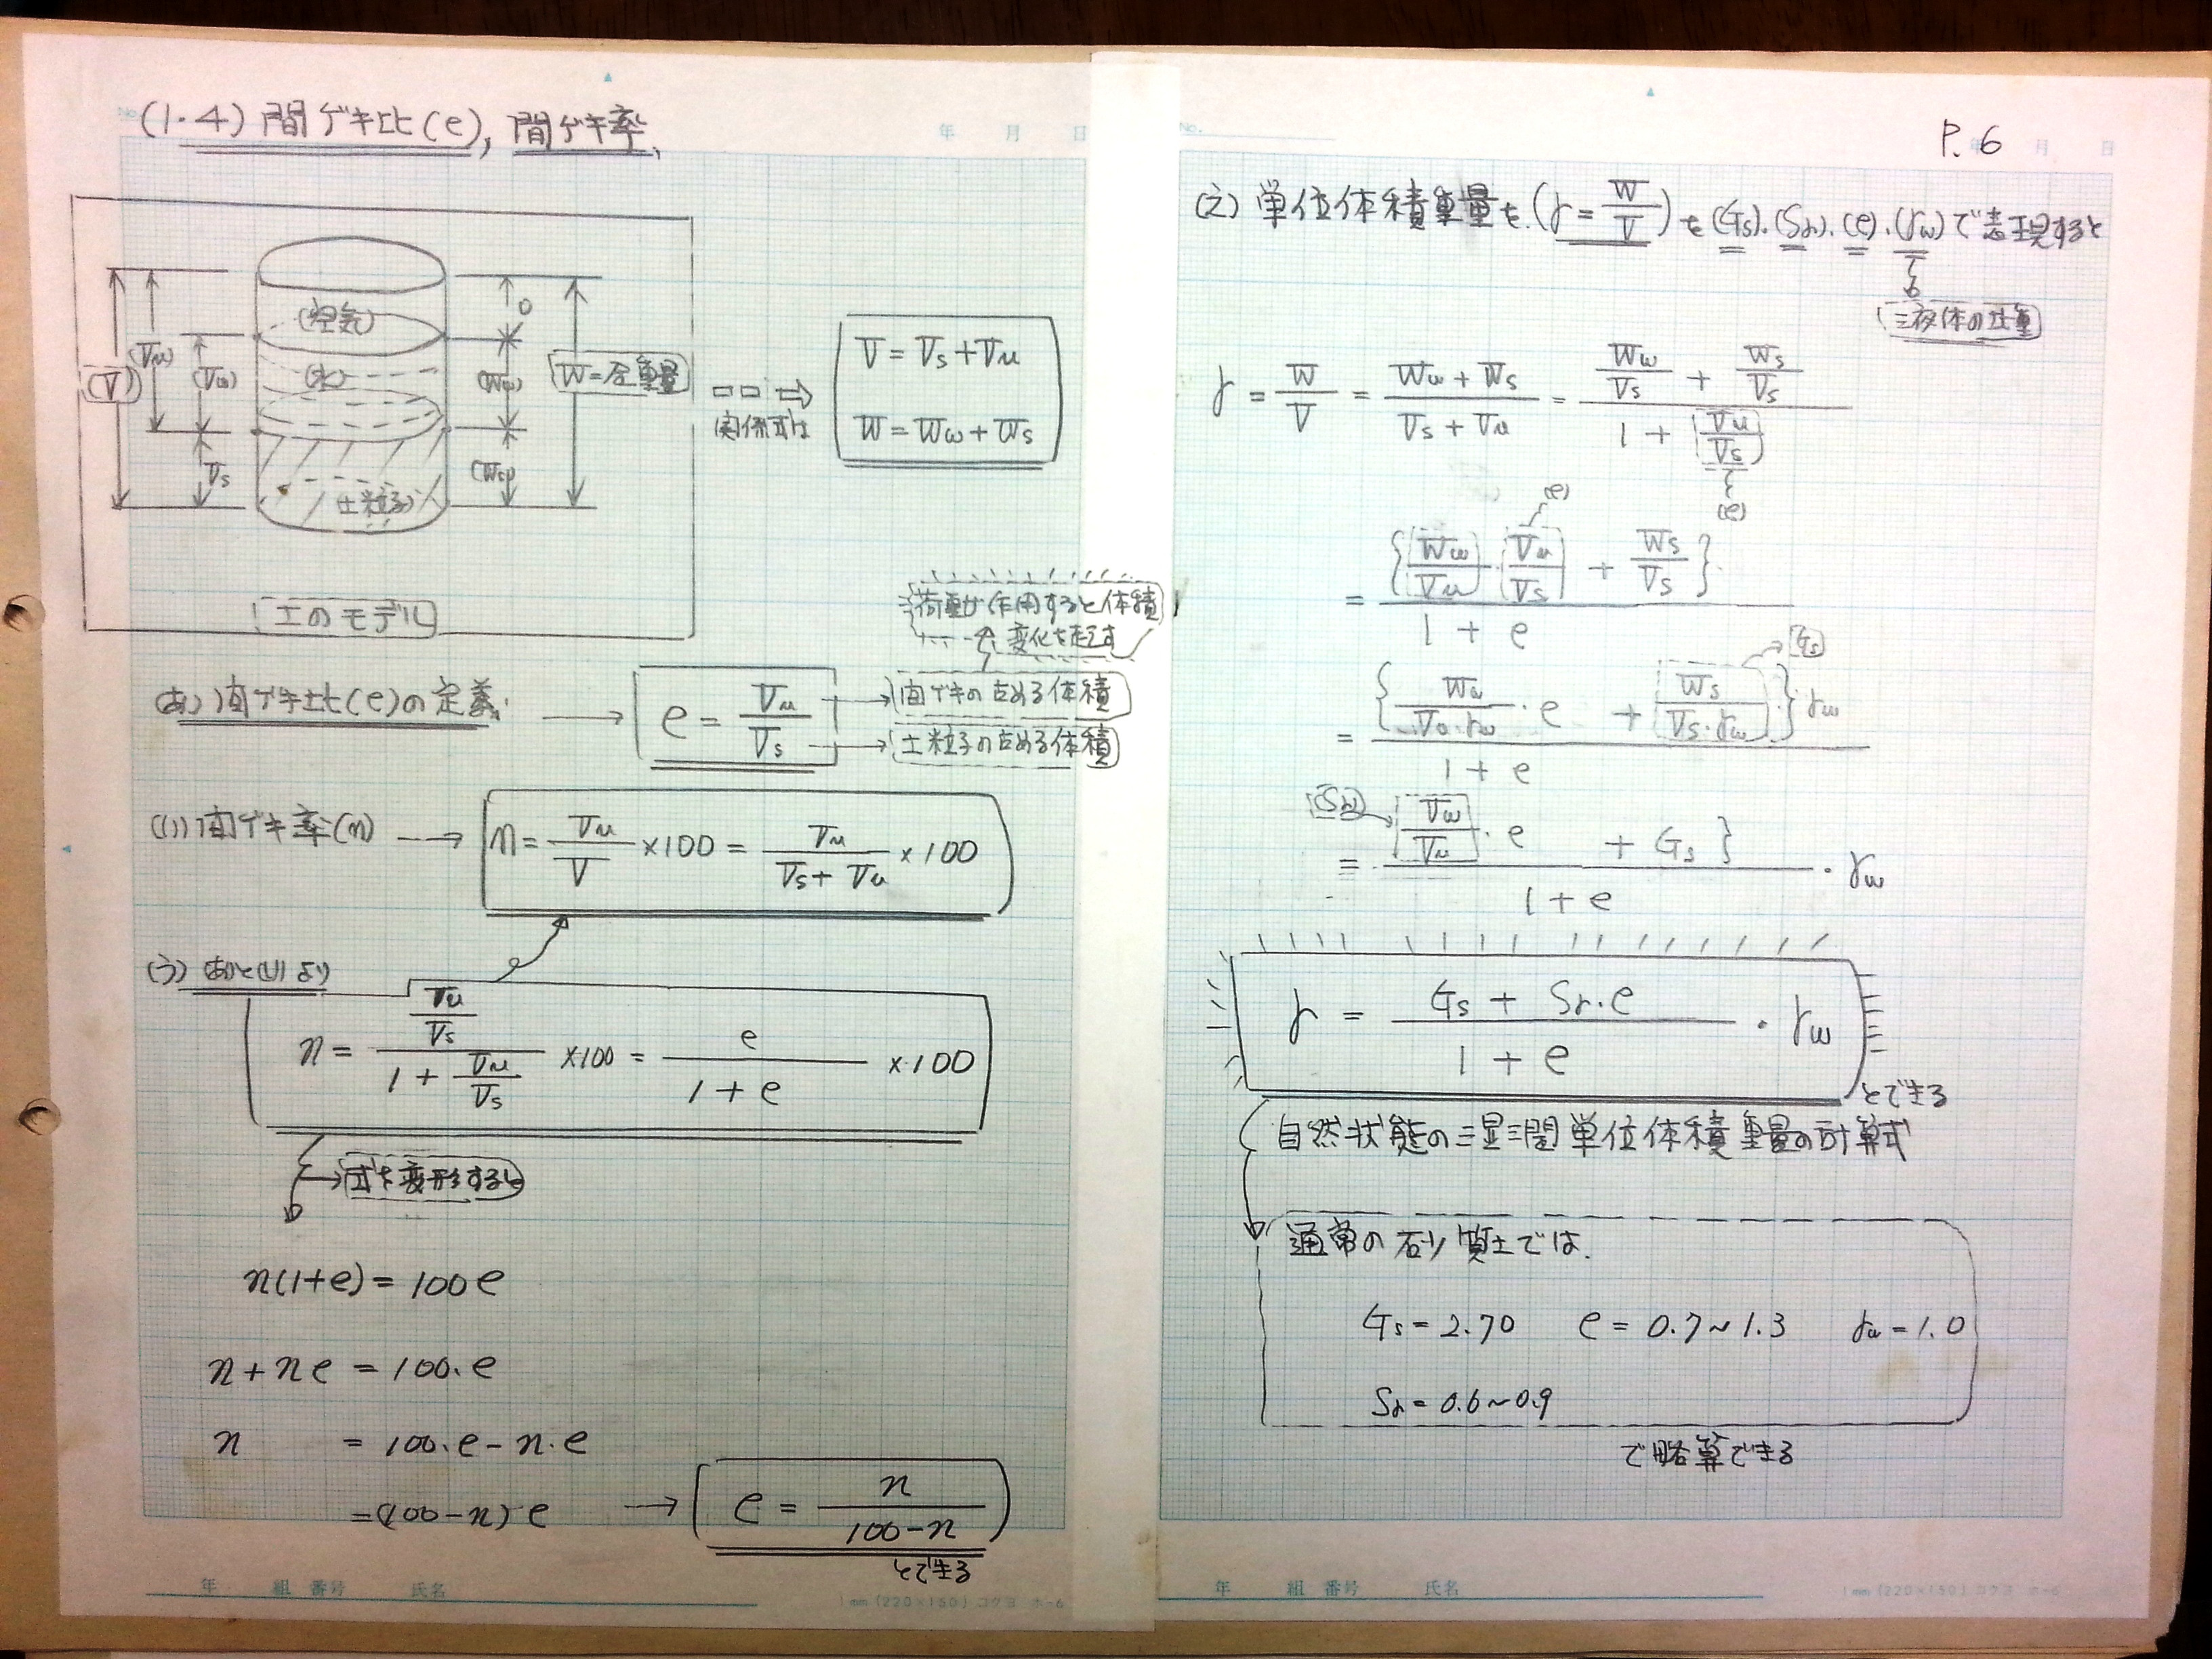 (1・4) 間ゲキ比(e), 間ゲキ率,
(空気)
(水)
(土粒子)
(V)
(Vu)
(Vw)
Vs
0
(Ww)
(Ws)
W=全重量
土のモデル
関係式は
V = Vs + Vu
W = Ww + Ws
荷重が作用すると体積
変化を起こす
(あ) 間ゲキ比(e)の定義,
e = Vu/Vs
間ゲキの占める体積
土粒子の占める体積
(い) 間ゲキ率(n)
n = Vu/V ×100 = Vu/(Vs + Vu) ×100
(う) (あ)と(い)より
n = (Vu/Vs)/(1 + Vu/Vs) ×100 = e/(1 + e) ×100
式を変形すると
n(1+e) = 100e
n + ne = 100・e
n = 100・e − n・e
=(100−n) e
e = n/(100−n)
とできる
年 組 番号 氏名
1mm (220×150) コクヨ ホ-6
No.
年 月 日
P. 6
(え) 単位体積重量を(γ = W/V)を(Gs)・(Sr)・(e)・(γw)で表現すると
液体の比重
γ = W/V = (Ww + Ws)/(Vs + Vu) = (Ww/Vs + Ws/Vs)/(1 + Vu/Vs)
(e)
(e)
= {Ww/Vu・Vu/Vs + Ws/Vs}/(1 + e)
(Gs)
= {Ww/(Vu・γw)・e + Ws/(Vs・γw)}γw/(1 + e)
(Sr)
= Vw/Vu・e + Gs}/(1 + e)・γw
γ = (Gs + Sr・e)/(1 + e)・γw
とできる
自然状態の湿潤単位体積重量の計算式
通常の砂質土では,
Gs = 2.70 e = 0.7~1.3 γw = 1.0
Sr = 0.6~0.9
で略算できる
年 組 番号 氏名
1mm (220×150) コクヨ ホ-6